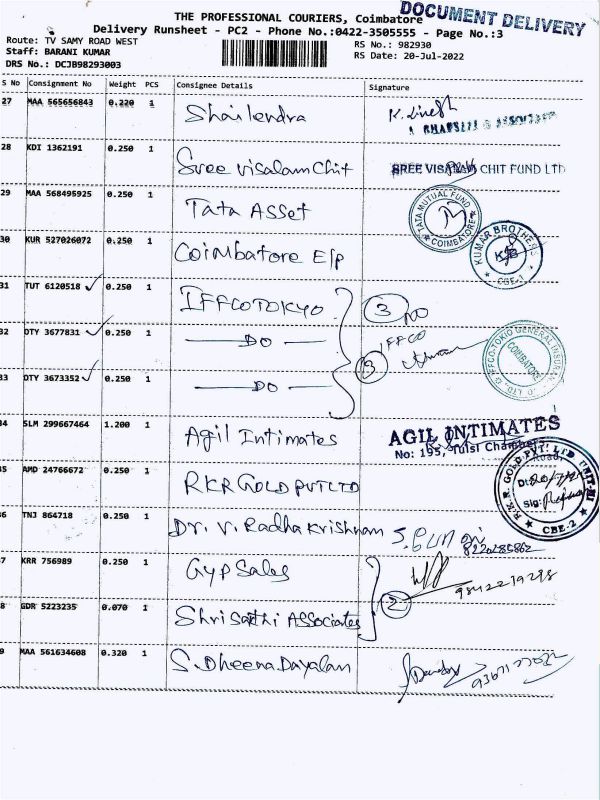 DOCUMENT DELIVERY
THE PROFESSIONAL COURIERS, Coimbatore
Delivery Runsheet - PC2 - Phone No.:0422-3505555 - Page No.:3
Route: TV SAMY ROAD WEST
Staff: BARANI KUMAR
DRS No.: DCJB98293003
RS No.: 982930
RS Date: 20-Jul-2022
S No Consignment No Weight PCS Consignee Details Signature
27 MAA 565656843 0.220 1 Shailendra
28 KDI 1362191 0.250 1 Sree Visalam Chit SREE VISALAM CHIT FUND LTD
29 MAA 568495925 0.250 1 Tata Asset TATA MUTUAL FUND COIMBATORE
30 KUR 527026072 0.250 1 Coimbatore E/p KUMAR BROTHERS CBE-1
31 TUT 6120518 0.250 1 IFFCO TOKYO 3
32 DTY 3677831 0.250 1 DO IFFCO
33 DTY 3673352 0.250 1 DO 3 COIMBATORE
34 SLM 299667464 1.200 1 Agil Intimates AGIL INTIMATES
No: 195, Tulsi Chamber
35 AMD 24766672 0.250 1 RKR GOLD PVT LTD R.K.R. GOLD PVT. LTD UNIT-III CBE-2
36 TNJ 864718 0.250 1 Dr. V. Radha Krishnan
37 KRR 756989 0.250 1 Gyp Sales
38 GDR 5223235 0.070 1 Shri Sakthi Associates 2
39 MAA 561634608 0.320 1 S. Dheena Dayalan